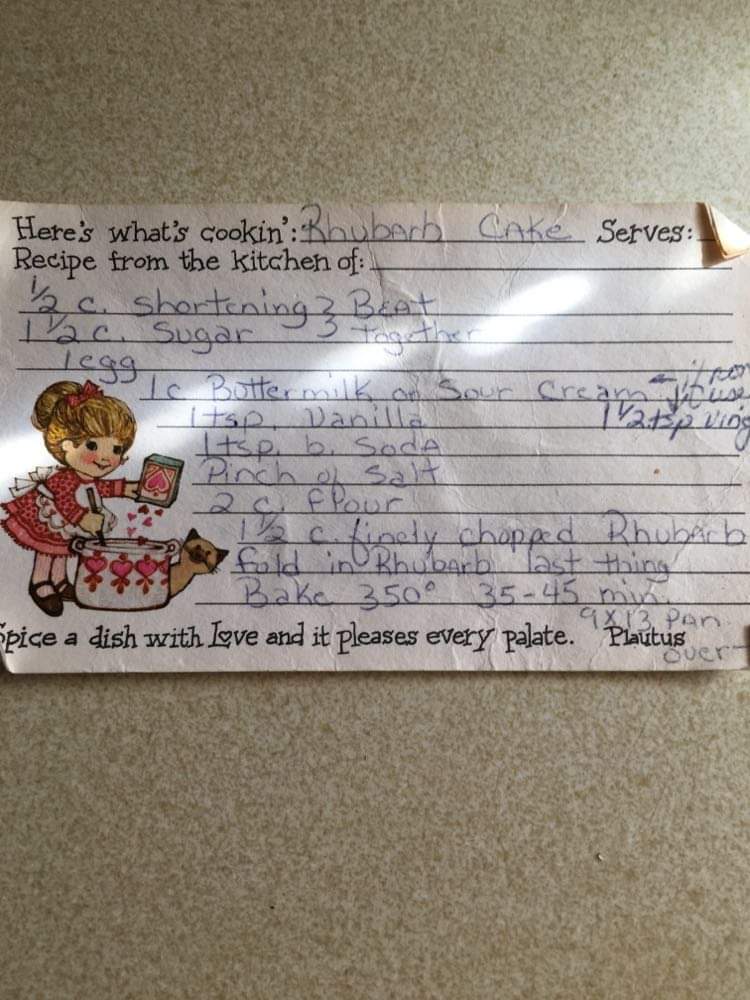 Here's what's cookin': Rhubarb Cake Serves:
Recipe from the kitchen of:
1/2 c. shortening } Beat
1 1/2 c. Sugar } together
1 egg
1 c Buttermilk or Sour Cream ← if
1 tsp. Vanilla 1 1/2 tsp
1 tsp. b. Soda
Pinch of Salt
2 c. flour
1 1/2 c. finely chopped Rhubarb
fold in Rhubarb last thing
Bake 350° 35-45 min.
9x13 Pan
Spice a dish with Love and it pleases every palate. Plautus
over